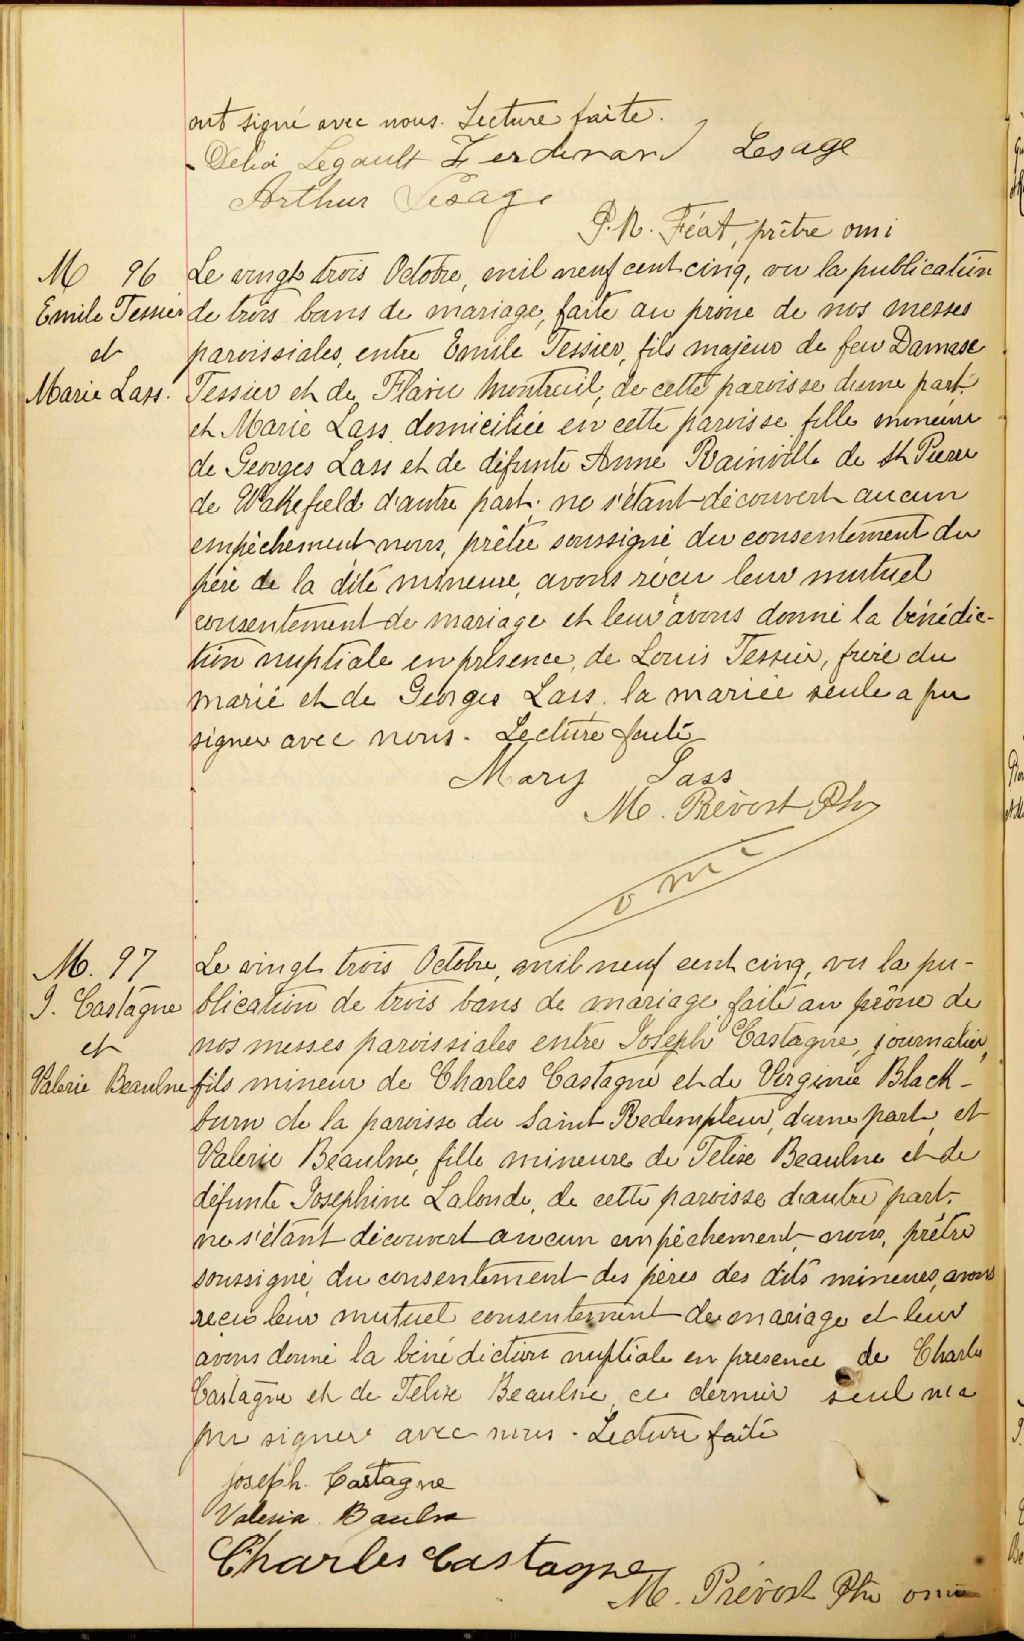 ont signé avec nous. Lecture faite.
Delia Legault Ferdinand Lesage
Arthur Lesage
P. N. Féat, prêtre omi
M 96
Emile Tessier
et
Marie Lass.
Le vingt trois Octobre, mil neuf cent cinq, vu la publication
de trois bans de mariage, faite au prône de nos messes
paroissiales, entre Emile Tessier, fils majeur de feu Damase
Tessier et de Flavie Montreuil, de cette paroisse d'une part
et Marie Lass domiciliée en cette paroisse fille mineure
de Georges Lass et de défunte Anne Rainville de St Pierre
de Wakefield d'autre part; ne s'étant découvert aucun
empêchement nous, prêtre soussigné du consentement du
père de la dite mineure, avons reçu leur mutuel
consentement de mariage et leur avons donné la bénédic-
tion nuptiale en présence, de Louis Tessier, frère du
marié et de Georges Lass. la mariée seule a pu
signer avec nous. Lecture faite
Mary Lass
M. Prévost Ptre
o m i
M. 97
J. Castagne
et
Valerie Beaulne
Le vingt trois Octobre, mil neuf cent cinq, vu la pu-
blication de trois bans de mariage faite au prône de
nos messes paroissiales entre Joseph Castagne, journalier,
fils mineur de Charles Castagne et de Virginie Black-
burn de la paroisse du Saint Redempteur, d'une part, et
Valerie Beaulne, fille mineure de Télise Beaulne et de
défunte Josephine Lalonde, de cette paroisse d'autre part,
ne s'étant découvert aucun empêchement, nous, prêtre
soussigné, du consentement des pères des dits mineurs, avons
reçu leur mutuel consentement de mariage et leur
avons donné la bénédiction nuptiale en presence de Charles
Castagne et de Télise Beaulne ce dernier seul n'a
pu signer avec nous. Lecture faite
Joseph. Castagne
Valeria Baulne
Charles Castagne
M. Prévost Ptre omi